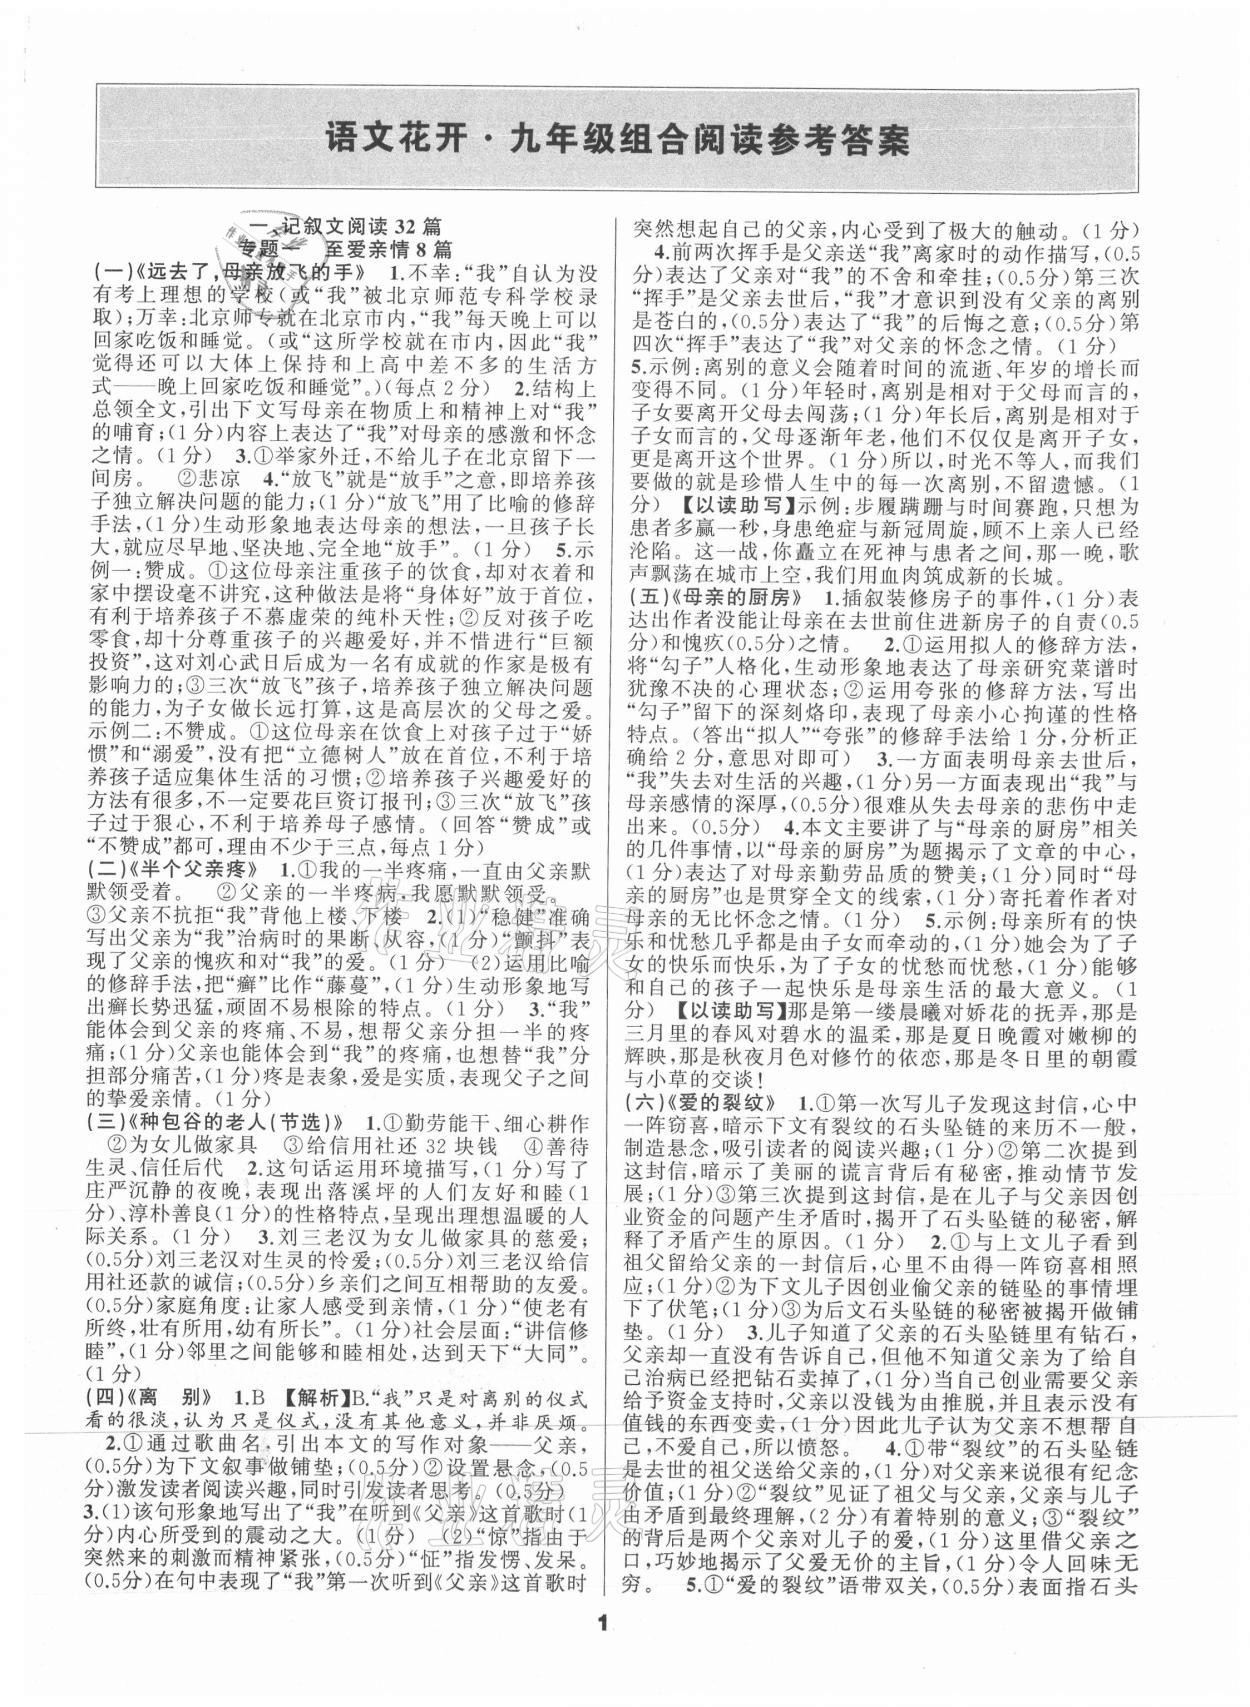 语文花开·九年级组合阅读参考答案
一 记叙文阅读 32 篇
专题一 至爱亲情 8 篇
(一)《远去了,母亲放飞的手》 1.不幸:“我”自认为没
有考上理想的学校(或“我”被北京师范专科学校录
取);万幸:北京师专就在北京市内,“我”每天晚上可以
回家吃饭和睡觉。(或“这所学校就在市内,因此“我”
觉得还可以大体上保持和上高中差不多的生活方
式——晚上回家吃饭和睡觉”。)(每点 2 分) 2.结构上
总领全文,引出下文写母亲在物质上和精神上对“我”
的哺育;(1 分)内容上表达了“我”对母亲的感激和怀念
之情。(1 分) 3.①举家外迁,不给儿子在北京留下一
间房。 ②悲凉 4.“放飞”就是“放手”之意,即培养孩
子独立解决问题的能力;(1 分)“放飞”用了比喻的修辞
手法,(1 分)生动形象地表达母亲的想法,一旦孩子长
大,就应尽早地、坚决地、完全地“放手”。(1 分) 5.示
例一:赞成。①这位母亲注重孩子的饮食,却对衣着和
家中摆设毫不讲究,这种做法是将“身体好”放于首位,
有利于培养孩子不慕虚荣的纯朴天性;②反对孩子吃
零食,却十分尊重孩子的兴趣爱好,并不惜进行“巨额
投资”,这对刘心武日后成为一名有成就的作家是极有
影响力的;③三次“放飞”孩子,培养孩子独立解决问题
的能力,为子女做长远打算,这是高层次的父母之爱。
示例二:不赞成。①这位母亲在饮食上对孩子过于“娇
惯”和“溺爱”,没有把“立德树人”放在首位,不利于培
养孩子适应集体生活的习惯;②培养孩子兴趣爱好的
方法有很多,不一定要花巨资订报刊;③三次“放飞”孩
子过于狠心,不利于培养母子感情。(回答“赞成”或
“不赞成”都可,理由不少于三点,每点 1 分)
(二)《半个父亲疼》 1.①我的一半疼痛,一直由父亲默
默领受着。 ②父亲的一半疼病,我愿默默领受。
③父亲不抗拒“我”背他上楼、下楼 2.(1)“稳健”准确
写出父亲为“我”治病时的果断、从容,(1 分)“颤抖”表
现了父亲的愧疚和对“我”的爱。(1 分) (2)运用比喻
的修辞手法,把“癣”比作“藤蔓”,(1 分)生动形象地写
出癣长势迅猛,顽固不易根除的特点。(1 分) 3.“我”
能体会到父亲的疼痛、不易,想帮父亲分担一半的疼
痛;(1 分)父亲也能体会到“我”的疼痛,也想替“我”分
担部分痛苦,(1 分)疼是表象,爱是实质,表现父子之间
的挚爱亲情。(1 分)
(三)《种包谷的老人(节选)》 1.①勤劳能干、细心耕作
②为女儿做家具 ③给信用社还 32 块钱 ④善待
生灵、信任后代 2.这句话运用环境描写,(1 分)写了
庄严沉静的夜晚,表现出落溪坪的人们友好和睦(1
分)、淳朴善良(1 分)的性格特点,呈现出理想温暖的人
际关系。(1 分) 3.刘三老汉为女儿做家具的慈爱;
(0.5分)刘三老汉对生灵的怜爱;(0.5分)刘三老汉给信
用社还款的诚信;(0.5分)乡亲们之间互相帮助的友爱。
(0.5分)家庭角度:让家人感受到亲情,(1 分)“使老有
所终,壮有所用,幼有所长”。(1 分)社会层面:“讲信修
睦”,(1 分)邻里之间能够和睦相处,达到天下“大同”。
(1 分)
(四)《离 别》 1.B 【解析】B.“我”只是对离别的仪式
看的很淡,认为只是仪式,没有其他意义,并非厌烦。
2.①通过歌曲名,引出本文的写作对象——父亲,
(0.5分)为下文叙事做铺垫;(0.5分)②设置悬念,(0.5
分)激发读者阅读兴趣,同时引发读者思考。(0.5分)
3.(1)该句形象地写出了“我”在听到《父亲》这首歌时(1
分)内心所受到的震动之大。(1 分) (2)“惊”指由于
突然来的刺激而精神紧张,(0.5分)“怔”指发愣、发呆。
(0.5分)在句中表现了“我”第一次听到《父亲》这首歌时
突然想起自己的父亲,内心受到了极大的触动。(1 分)
4.前两次挥手是父亲送“我”离家时的动作描写,(0.5
分)表达了父亲对“我”的不舍和牵挂;(0.5分)第三次
“挥手”是父亲去世后,“我”才意识到没有父亲的离别
是苍白的,(0.5分)表达了“我”的后悔之意;(0.5分)第
四次“挥手”表达了“我”对父亲的怀念之情。(1 分)
5.示例:离别的意义会随着时间的流逝、年岁的增长而
变得不同。(1 分)年轻时,离别是相对于父母而言的,
子女要离开父母去闯荡;(1 分)年长后,离别是相对于
子女而言的,父母逐渐年老,他们不仅仅是离开子女,
更是离开这个世界。(1 分)所以,时光不等人,而我们
要做的就是珍惜人生中的每一次离别,不留遗憾。(1
分) 【以读助写】示例:步履蹒跚与时间赛跑,只想为
患者多赢一秒,身患绝症与新冠周旋,顾不上亲人已经
沦陷。这一战,你矗立在死神与患者之间,那一晚,歌
声飘荡在城市上空,我们用血肉筑成新的长城。
(五)《母亲的厨房》 1.插叙装修房子的事件,(1 分)表
达出作者没能让母亲在去世前住进新房子的自责(0.5
分)和愧疚(0.5分)之情。 2.①运用拟人的修辞方法,
将“勾子”人格化,生动形象地表达了母亲研究菜谱时
犹豫不决的心理状态;②运用夸张的修辞方法,写出
“勾子”留下的深刻烙印,表现了母亲小心拘谨的性格
特点。(答出“拟人”“夸张”的修辞手法给 1 分,分析正
确给 2 分,意思对即可) 3.一方面表明母亲去世后,
“我”失去对生活的兴趣,(1 分)另一方面表现出“我”与
母亲感情的深厚,(0.5分)很难从失去母亲的悲伤中走
出来。(0.5分) 4.本文主要讲了与“母亲的厨房”相关
的几件事情,以“母亲的厨房”为题揭示了文章的中心,
(1 分)表达了对母亲勤劳品质的赞美;(1 分)同时“母
亲的厨房”也是贯穿全文的线索,(1 分)寄托着作者对
母亲的无比怀念之情。(1 分) 5.示例:母亲所有的快
乐和忧愁几乎都是由子女而牵动的,(1 分)她会为了子
女的快乐而快乐,为了子女的忧愁而忧愁,(1 分)能够
和自己的孩子一起快乐是母亲生活的最大意义。(1
分) 【以读助写】那是第一缕晨曦对娇花的抚弄,那是
三月里的春风对碧水的温柔,那是夏日晚霞对嫩柳的
辉映,那是秋夜月色对修竹的依恋,那是冬日里的朝霞
与小草的交谈!
(六)《爱的裂纹》 1.①第一次写儿子发现这封信,心中
一阵窃喜,暗示下文有裂纹的石头坠链的来历不一般,
制造悬念,吸引读者的阅读兴趣;(1 分)②第二次提到
这封信,暗示了美丽的谎言背后有秘密,推动情节发
展;(1 分)③第三次提到这封信,是在儿子与父亲因创
业资金的问题产生矛盾时,揭开了石头坠链的秘密,解
释了矛盾产生的原因。(1 分) 2.①与上文儿子看到
祖父留给父亲的一封信后,心里不由得一阵窃喜相照
应;(1 分)②为下文儿子因创业偷父亲的链坠的事情埋
下了伏笔;(1 分)③为后文石头坠链的秘密被揭开做铺
垫。(1 分) 3.儿子知道了父亲的石头坠链里有钻石,
父亲却一直没有告诉自己,但他不知道父亲为了给自
己治病已经把钻石卖掉了,(1 分)当自己创业需要父亲
给予资金支持时,父亲以没钱为由推脱,并且表示没有
值钱的东西变卖,(1 分)因此儿子认为父亲不想帮自
己,不爱自己,所以愤怒。 4.①带“裂纹”的石头坠链
是去世的祖父送给父亲的,(1 分)对父亲来说很有纪念
价值;(1 分)②“裂纹”见证了祖父与父亲,父亲与儿子
由矛盾到最终理解,(2 分)有着特别的意义;③“裂纹”
的背后是两个父亲对儿子的爱,(1 分)作者借父亲之
口,巧妙地揭示了父爱无价的主旨,(1 分)令人回味无
穷。 5.①“爱的裂纹”语带双关,(0.5分)表面指石头
1